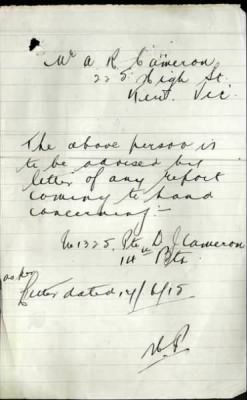 Mr A R Cameron
225 High St.
Kew. Vic.
The above person is
to be advised by
letter of any report
coming to hand
concerning:—
No 1325. Pte D. J. Cameron
14th Btn
as per
letter dated 14/6/15